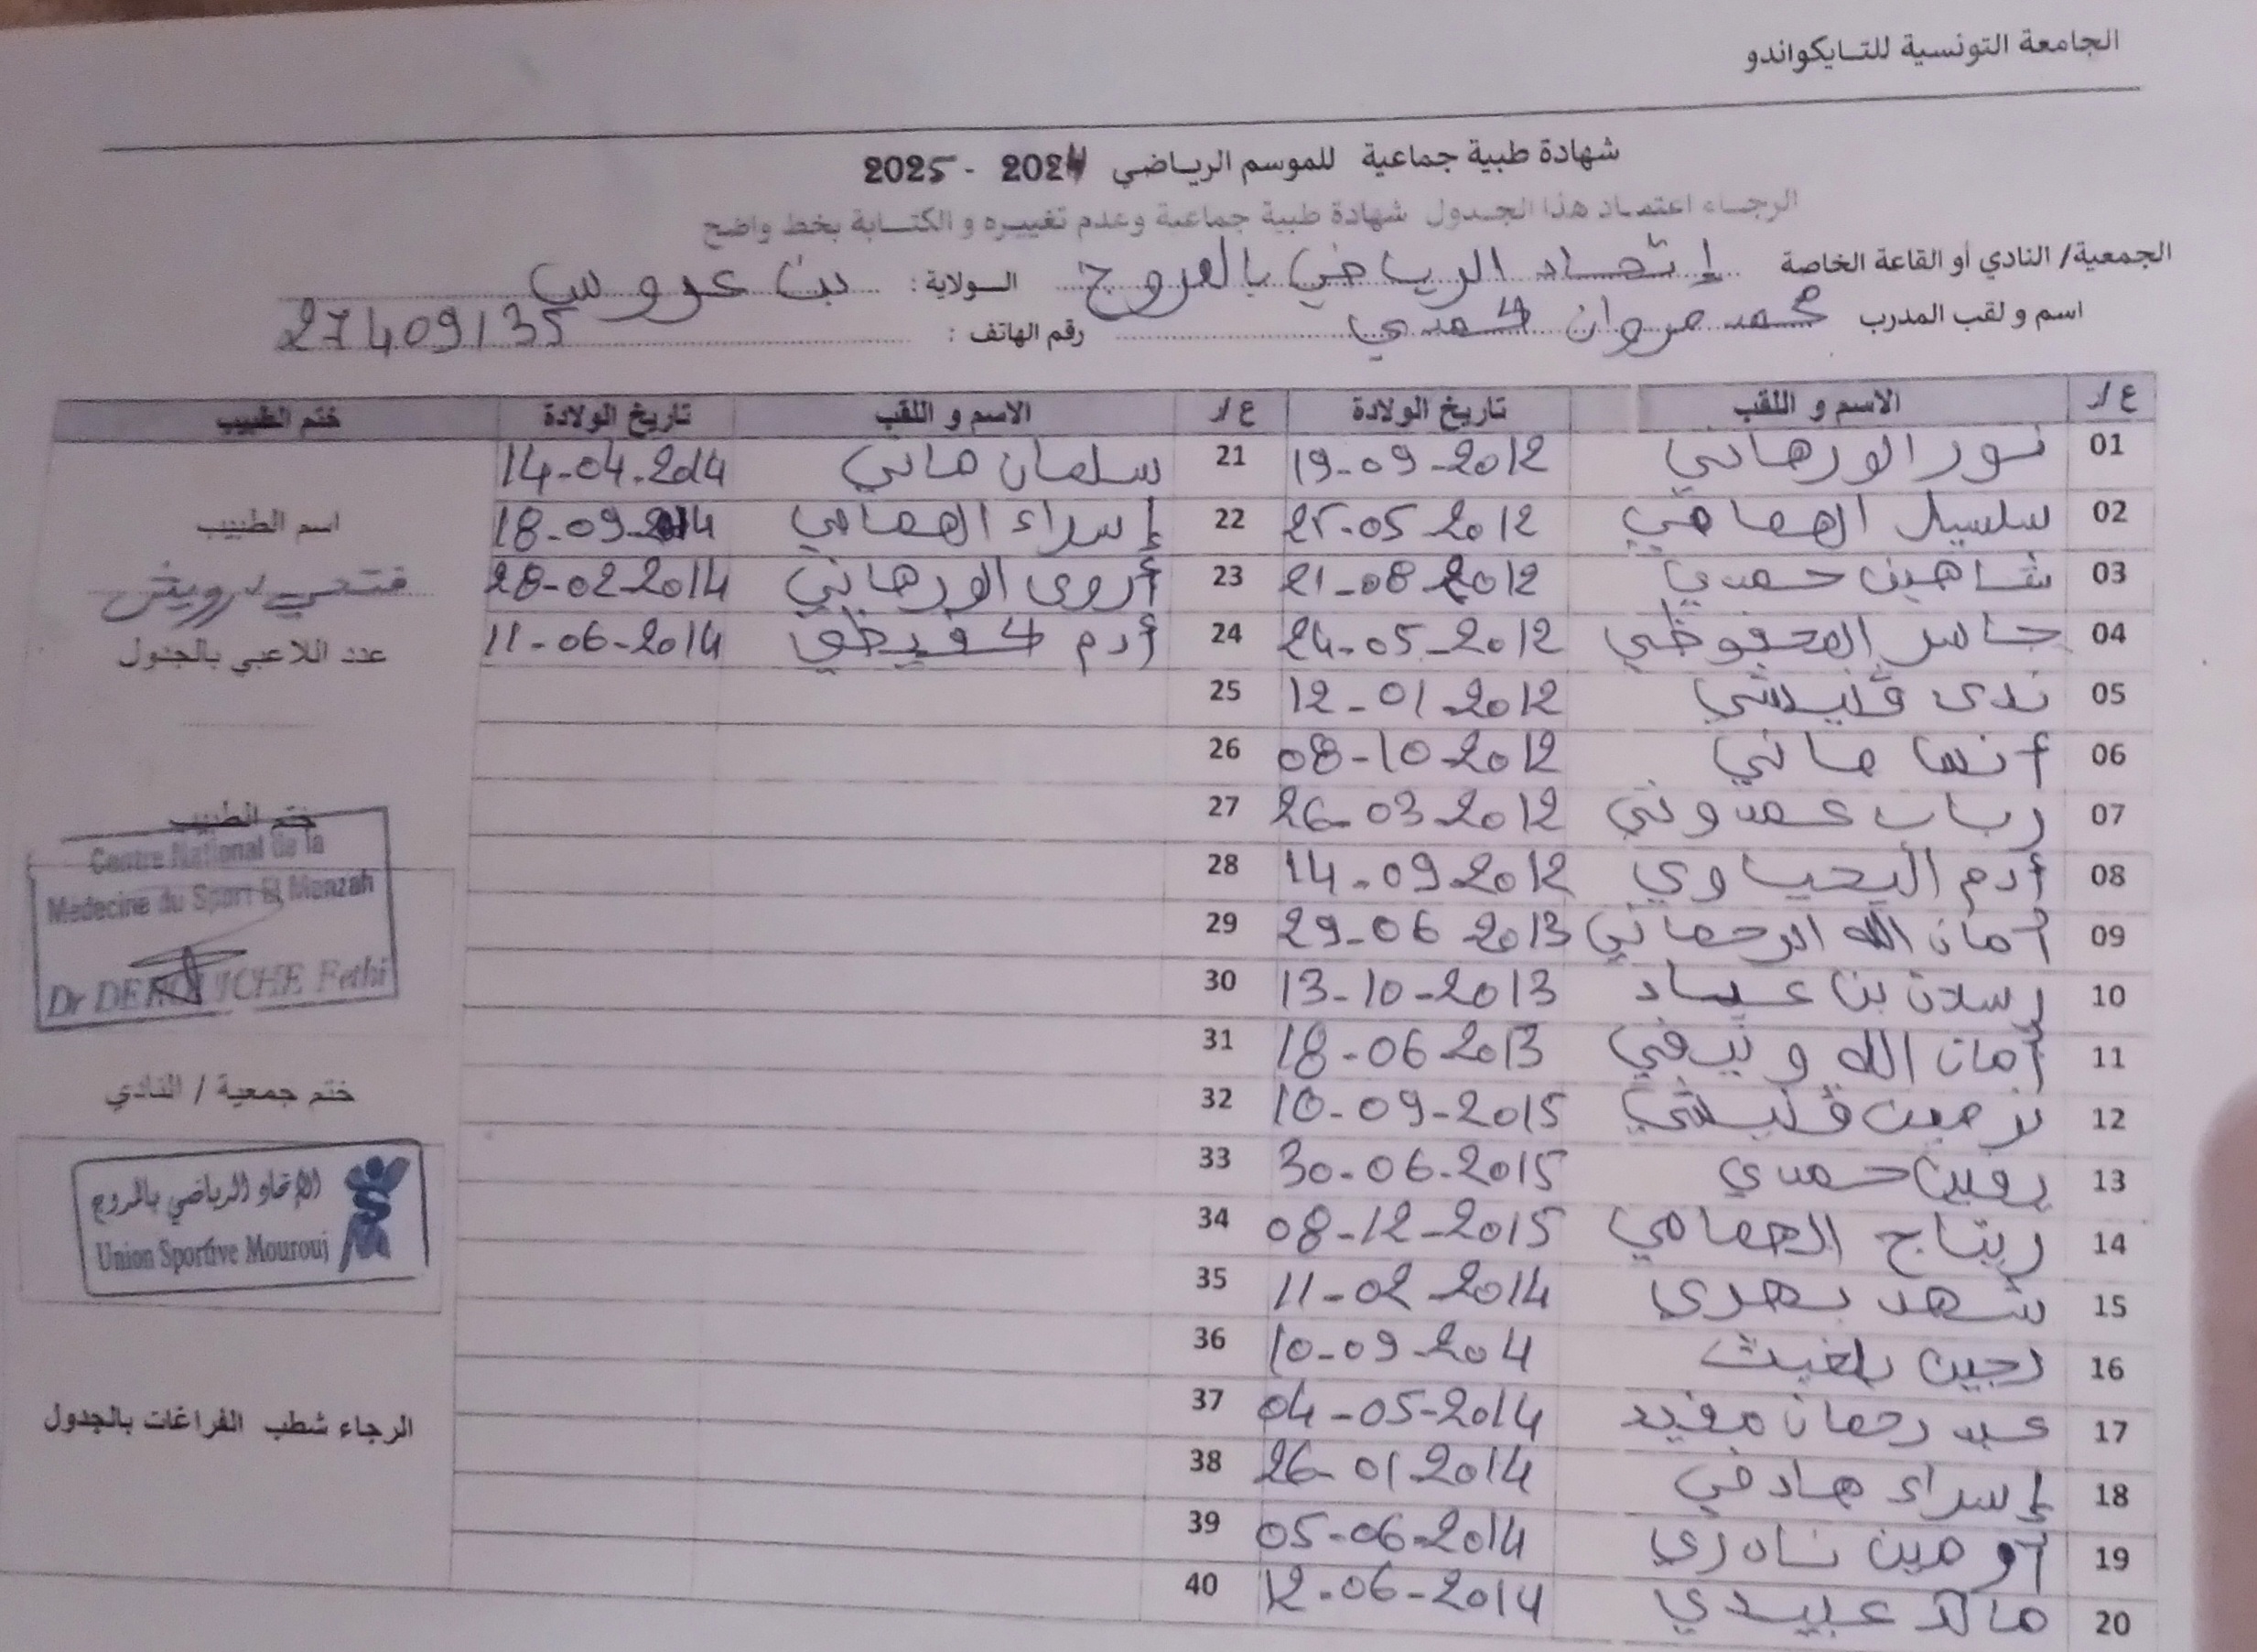 الجامعة التونسية للتايكواندو
شهادة طبية جماعية للموسم الرياضي 2024 - 2025
الرجاء اعتماد هذا الجدول شهادة طبية جماعية وعدم تغييره و الكتابة بخط واضح
الجمعية/ النادي أو القاعة الخاصة إتحاد الرياضي بالمروج الولاية: بن عروس
اسم و لقب المدرب محمد مروان حمدي رقم الهاتف: 27409135
ع/ر الاسم و اللقب تاريخ الولادة ع/ر الاسم و اللقب تاريخ الولادة ختم الطبيب
01 نور الورهاني 19-09-2012 21 سلمان ماني 14-04-2014
02 سلسبيل الهمامي 05-2012 22 إسراء الهمامي 18-09-2014 اسم الطبيب
03 شاهين حمدي 21-08-2012 23 أروى الورهاني 28-02-2014 فتحي درويش
04 جاسر المحفوظي 24-05-2012 24 أدم 11-06-2014 عدد اللاعبي بالجدول
05 ندى ڨليشي 12-01-2012 25
06 أنس ماني 08-10-2012 26
07 رباب عمدوني 26-03-2012 27 ختم الطبيب
08 أدم اليحياوي 14-09-2012 28
09 أمان الله الرحماني 29-06-2013 29
10 رسلان بن عياد 13-10-2013 30
11 أمان الله ونيفي 18-06-2013 31
12 نرمين ڨليشي 10-09-2015 32
13 حمدي 30-06-2015 33
14 ريتاج الهمامي 08-12-2015 34
15 شهد بحري 11-02-2014 35
16 لجين بلغيث 10-09-204 36
17 عبد رحمان مفيد 04-05-2014 37
18 إسراء هادفي 26-01-2014 38
19 نادري 05-06-2014 39
20 مالك عبيدي 12-06-2014 40
Centre National de la
Médecine du Sport El Menzah
Dr DEROUICHE Fethi
ختم جمعية / النادي
الإتحاد الرياضي بالمروج
Union Sportive Mourouj
الرجاء شطب الفراغات بالجدول